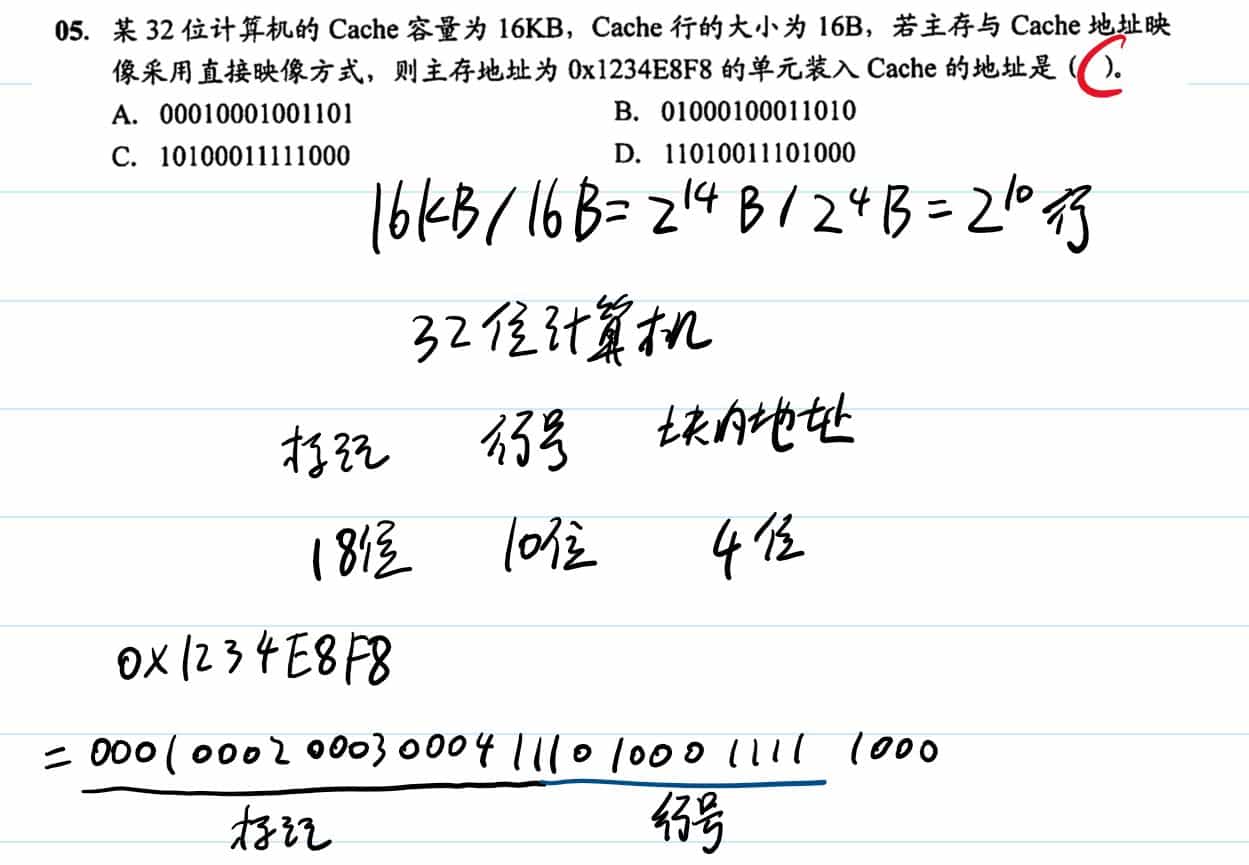 05. 某 32 位计算机的 Cache 容量为 16KB，Cache 行的大小为 16B，若主存与 Cache 地址映
像采用直接映像方式，则主存地址为 0x1234E8F8 的单元装入 Cache 的地址是（C）。
A. 00010001001101 B. 01000100011010
C. 10100011111000 D. 11010011101000
16KB/16B=2^14 B/2^4 B=2^10 行
32位计算机
标记 行号 块内地址
18位 10位 4位
0X1234E8F8
=0001 0002 0003 0004 1110 1000 1111 1000
标记 行号